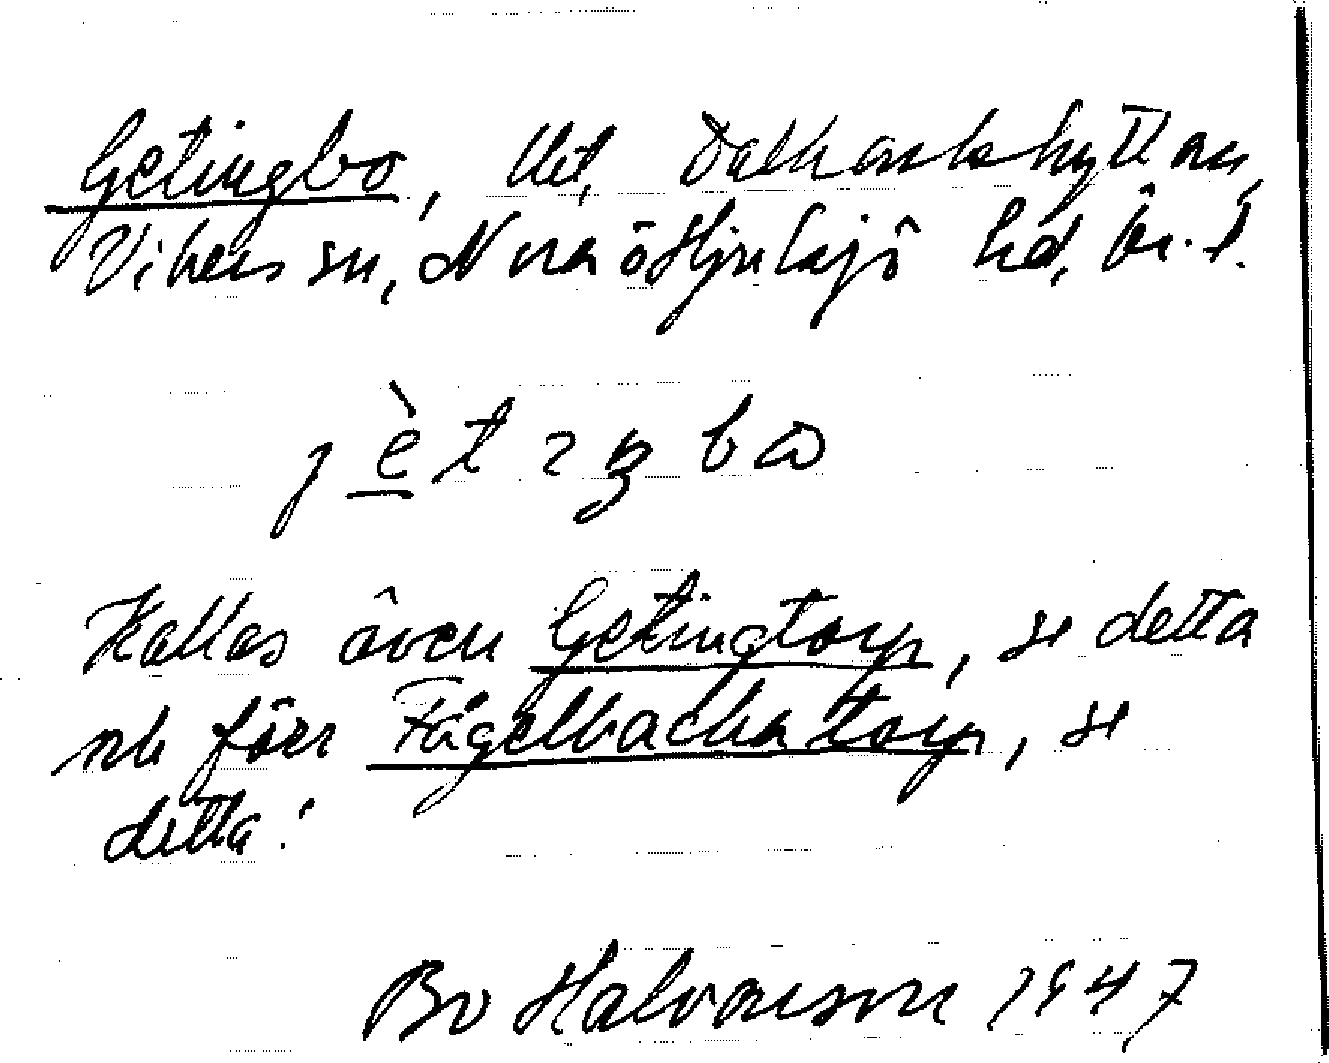 Getingbo, lht, Dalkarlshyttan,
Vikers sn, Nora o Hjulsjö hd, Ör. l.
jètıŋbω
Kallas även Getingtorp, se detta
och förr Fågelbackatorp, se
detta!
Bo Halvarson 1947